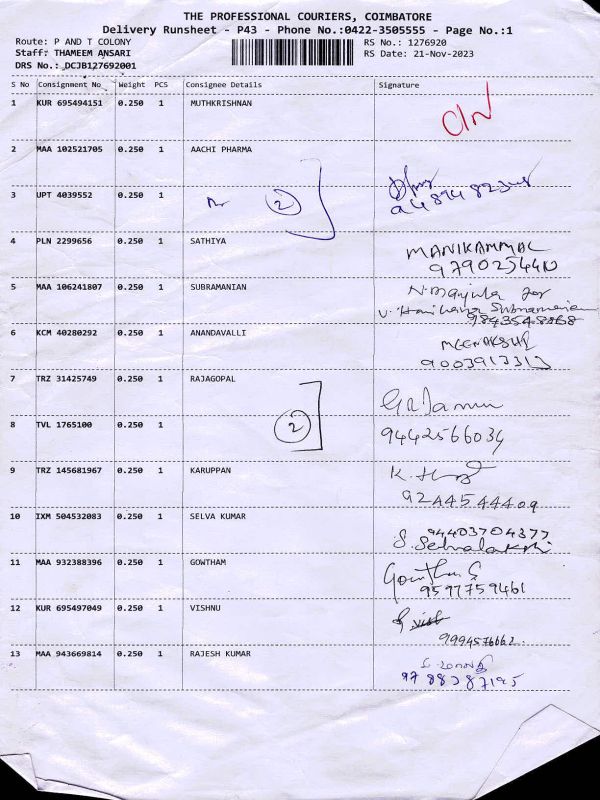 THE PROFESSIONAL COURIERS, COIMBATORE
Delivery Runsheet - P43 - Phone No.:0422-3505555 - Page No.:1
Route: P AND T COLONY RS No.: 1276920
Staff: THAMEEM ANSARI RS Date: 21-Nov-2023
DRS No.: DCJB127692001
S No Consignment No Weight PCS Consignee Details Signature
1 KUR 695494151 0.250 1 MUTHKRISHNAN
2 MAA 102521705 0.250 1 AACHI PHARMA
3 UPT 4039552 0.250 1 2
4 PLN 2299656 0.250 1 SATHIYA MANIKAMMAL
9790254410
5 MAA 106241807 0.250 1 SUBRAMANIAN N. Manjula for
9843548868
6 KCM 40280292 0.250 1 ANANDAVALLI MEENAKSHI
9003913313
7 TRZ 31425749 0.250 1 RAJAGOPAL
8 TVL 1765100 0.250 1 2 9442566034
9 TRZ 145681967 0.250 1 KARUPPAN K.
9244544409
10 IXM 504532083 0.250 1 SELVA KUMAR 94403704377
S. Selvalakshi
11 MAA 932388396 0.250 1 GOWTHAM Gowtham S
9597759461
12 KUR 695497049 0.250 1 VISHNU
9994576662.
13 MAA 943669814 0.250 1 RAJESH KUMAR
9788387195